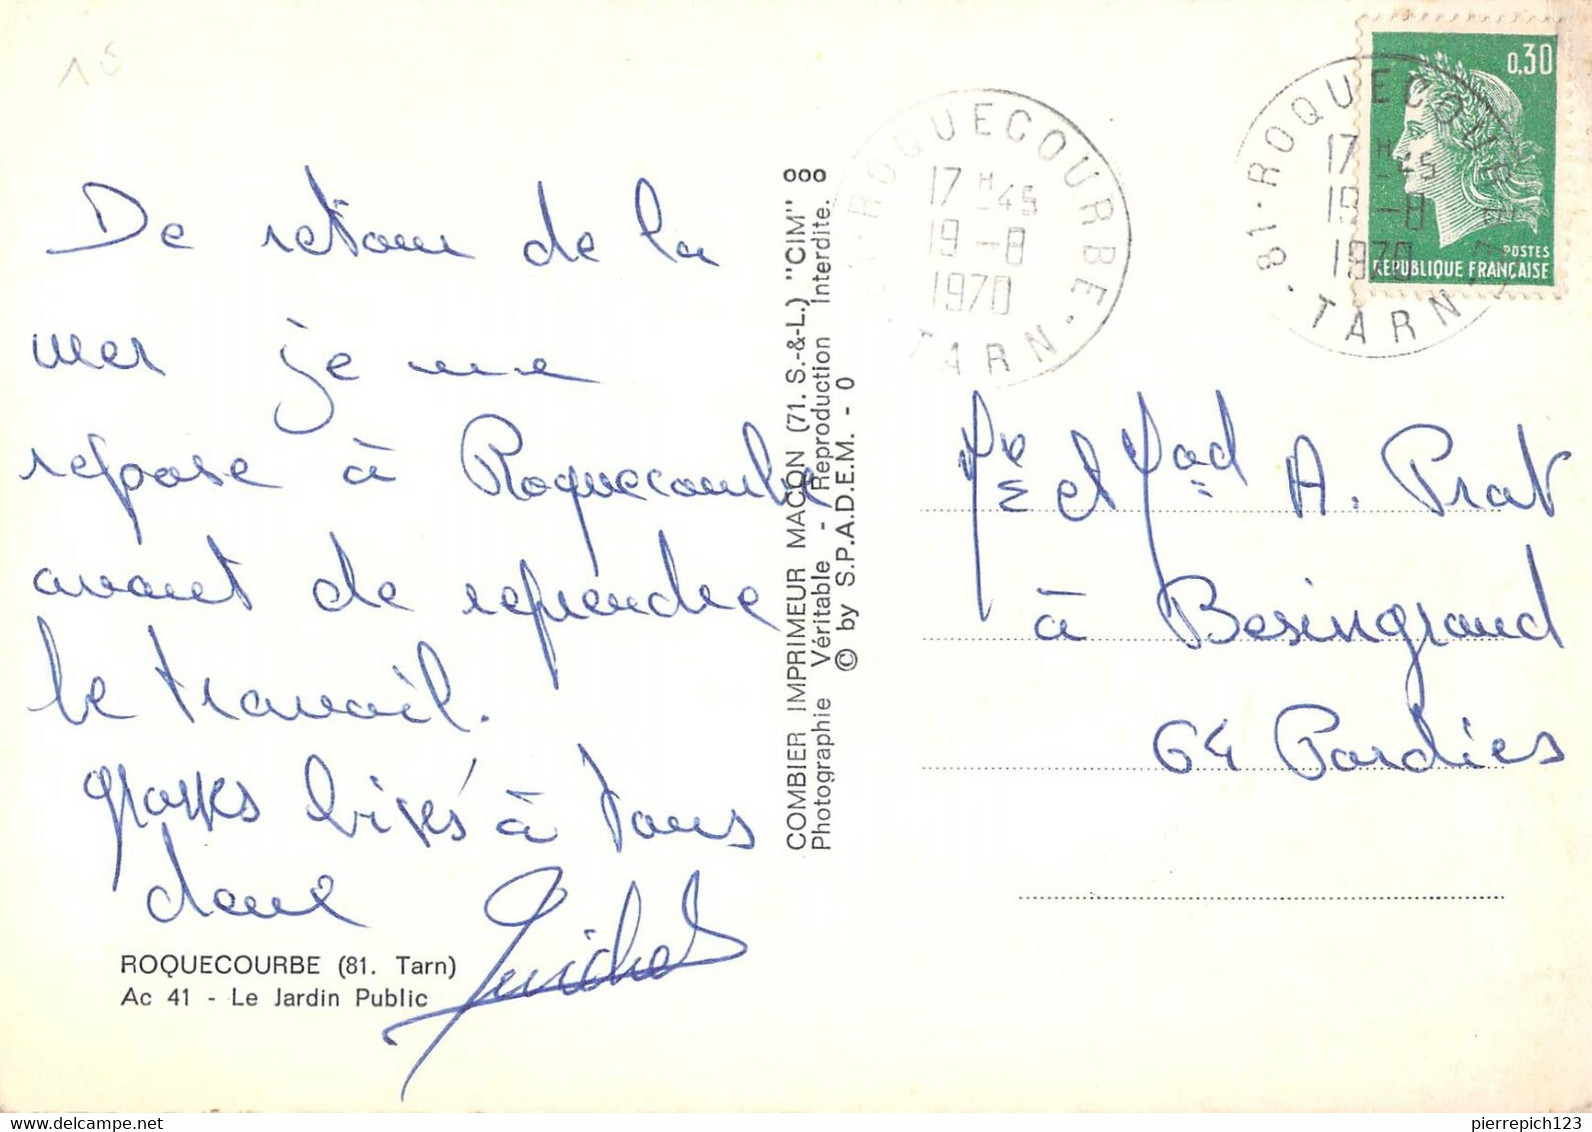 De retour de la
mer je me
repose à Roquecourbe
avant de reprendre
le travail.
grosses bises à tous
deux
ROQUECOURBE (81. Tarn)
Ac 41 - Le Jardin Public
COMBIER IMPRIMEUR MACON (71. S.-&-L.) "CIM"
Photographie Véritable - Reproduction Interdite.
© by S.P.A.D.E.M. - 0
ROQUECOURBE
17 H 45
19 - 8
1970
TARN
81 · ROQUECOURBE
17 H 45
19 - 8
1970
TARN
0,30
POSTES
REPUBLIQUE FRANÇAISE
et Mad A. Prat
à Besingrand
64 Pardies
delcampe.net
pierrepich123